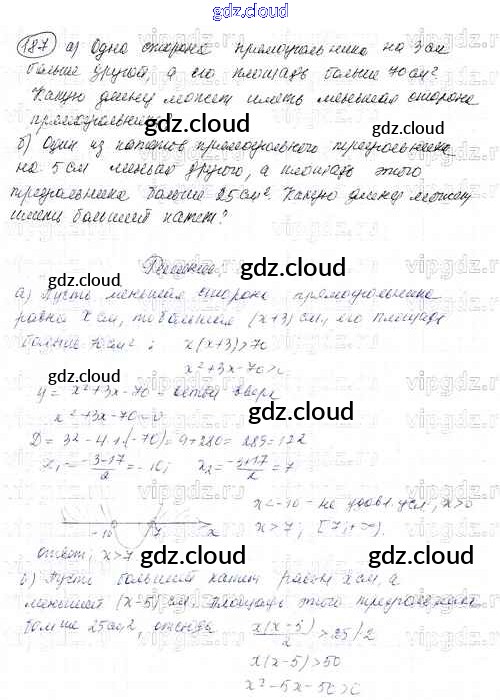 gdz.cloud
187 а) Одна сторона прямоугольника на 3 см
больше другой, а его площадь больше 70 см².
Какую длину может иметь меньшая сторона
прямоугольника
б) Один из катетов прямоугольного треугольника
на 5 см меньше другого, а площадь этого
треугольника больше 25 см². Какую длину может
иметь больший катет?
Решение.
а) Пусть меньшая сторона прямоугольника
равна x см, то большая (x+3) см, его площадь
больше 70 см²; x(x+3)>70
x²+3x-70>0
y = x²+3x-70 - ветви вверх
x²+3x-70=0
D = 3²-4·1·(-70) = 9+280 = 289 = 17²
x₁ = (-3-17)/2 = -10; x₂ = (-3+17)/2 = 7
x<-10 - не удовл. усл., x>0
-10 7 x x>7; [7;+∞).
ответ: x>7
б) Пусть больший катет равен x см, а
меньший (x-5) см. Площадь этого треугольника
больше 25 см², отсюда x(x-5)/2 >25 |·2
x(x-5)>50
x²-5x-50>0